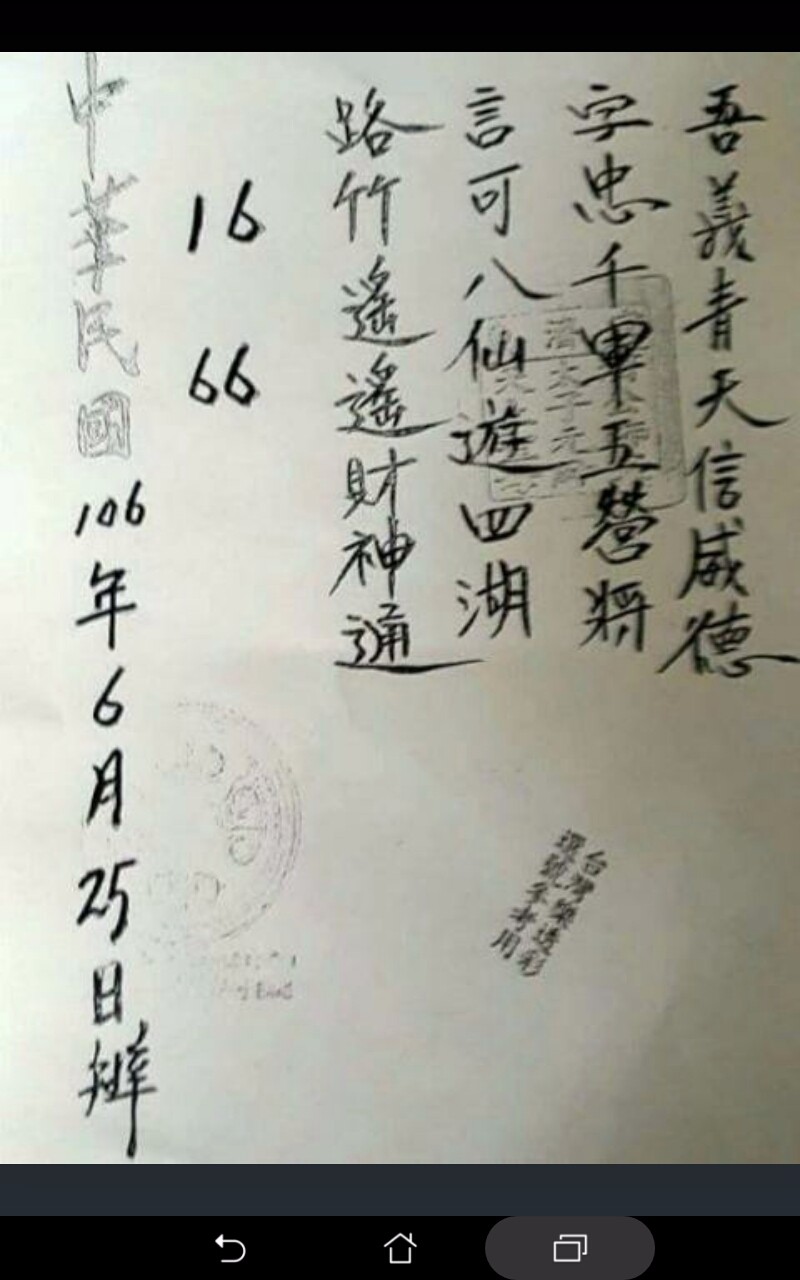 吾義青天信威德
字忠千軍五營將
言可八仙遊四湖
路竹遙遙財神通
16 66
中華民國106年6月25日辦
台灣樂透彩
選號參考用